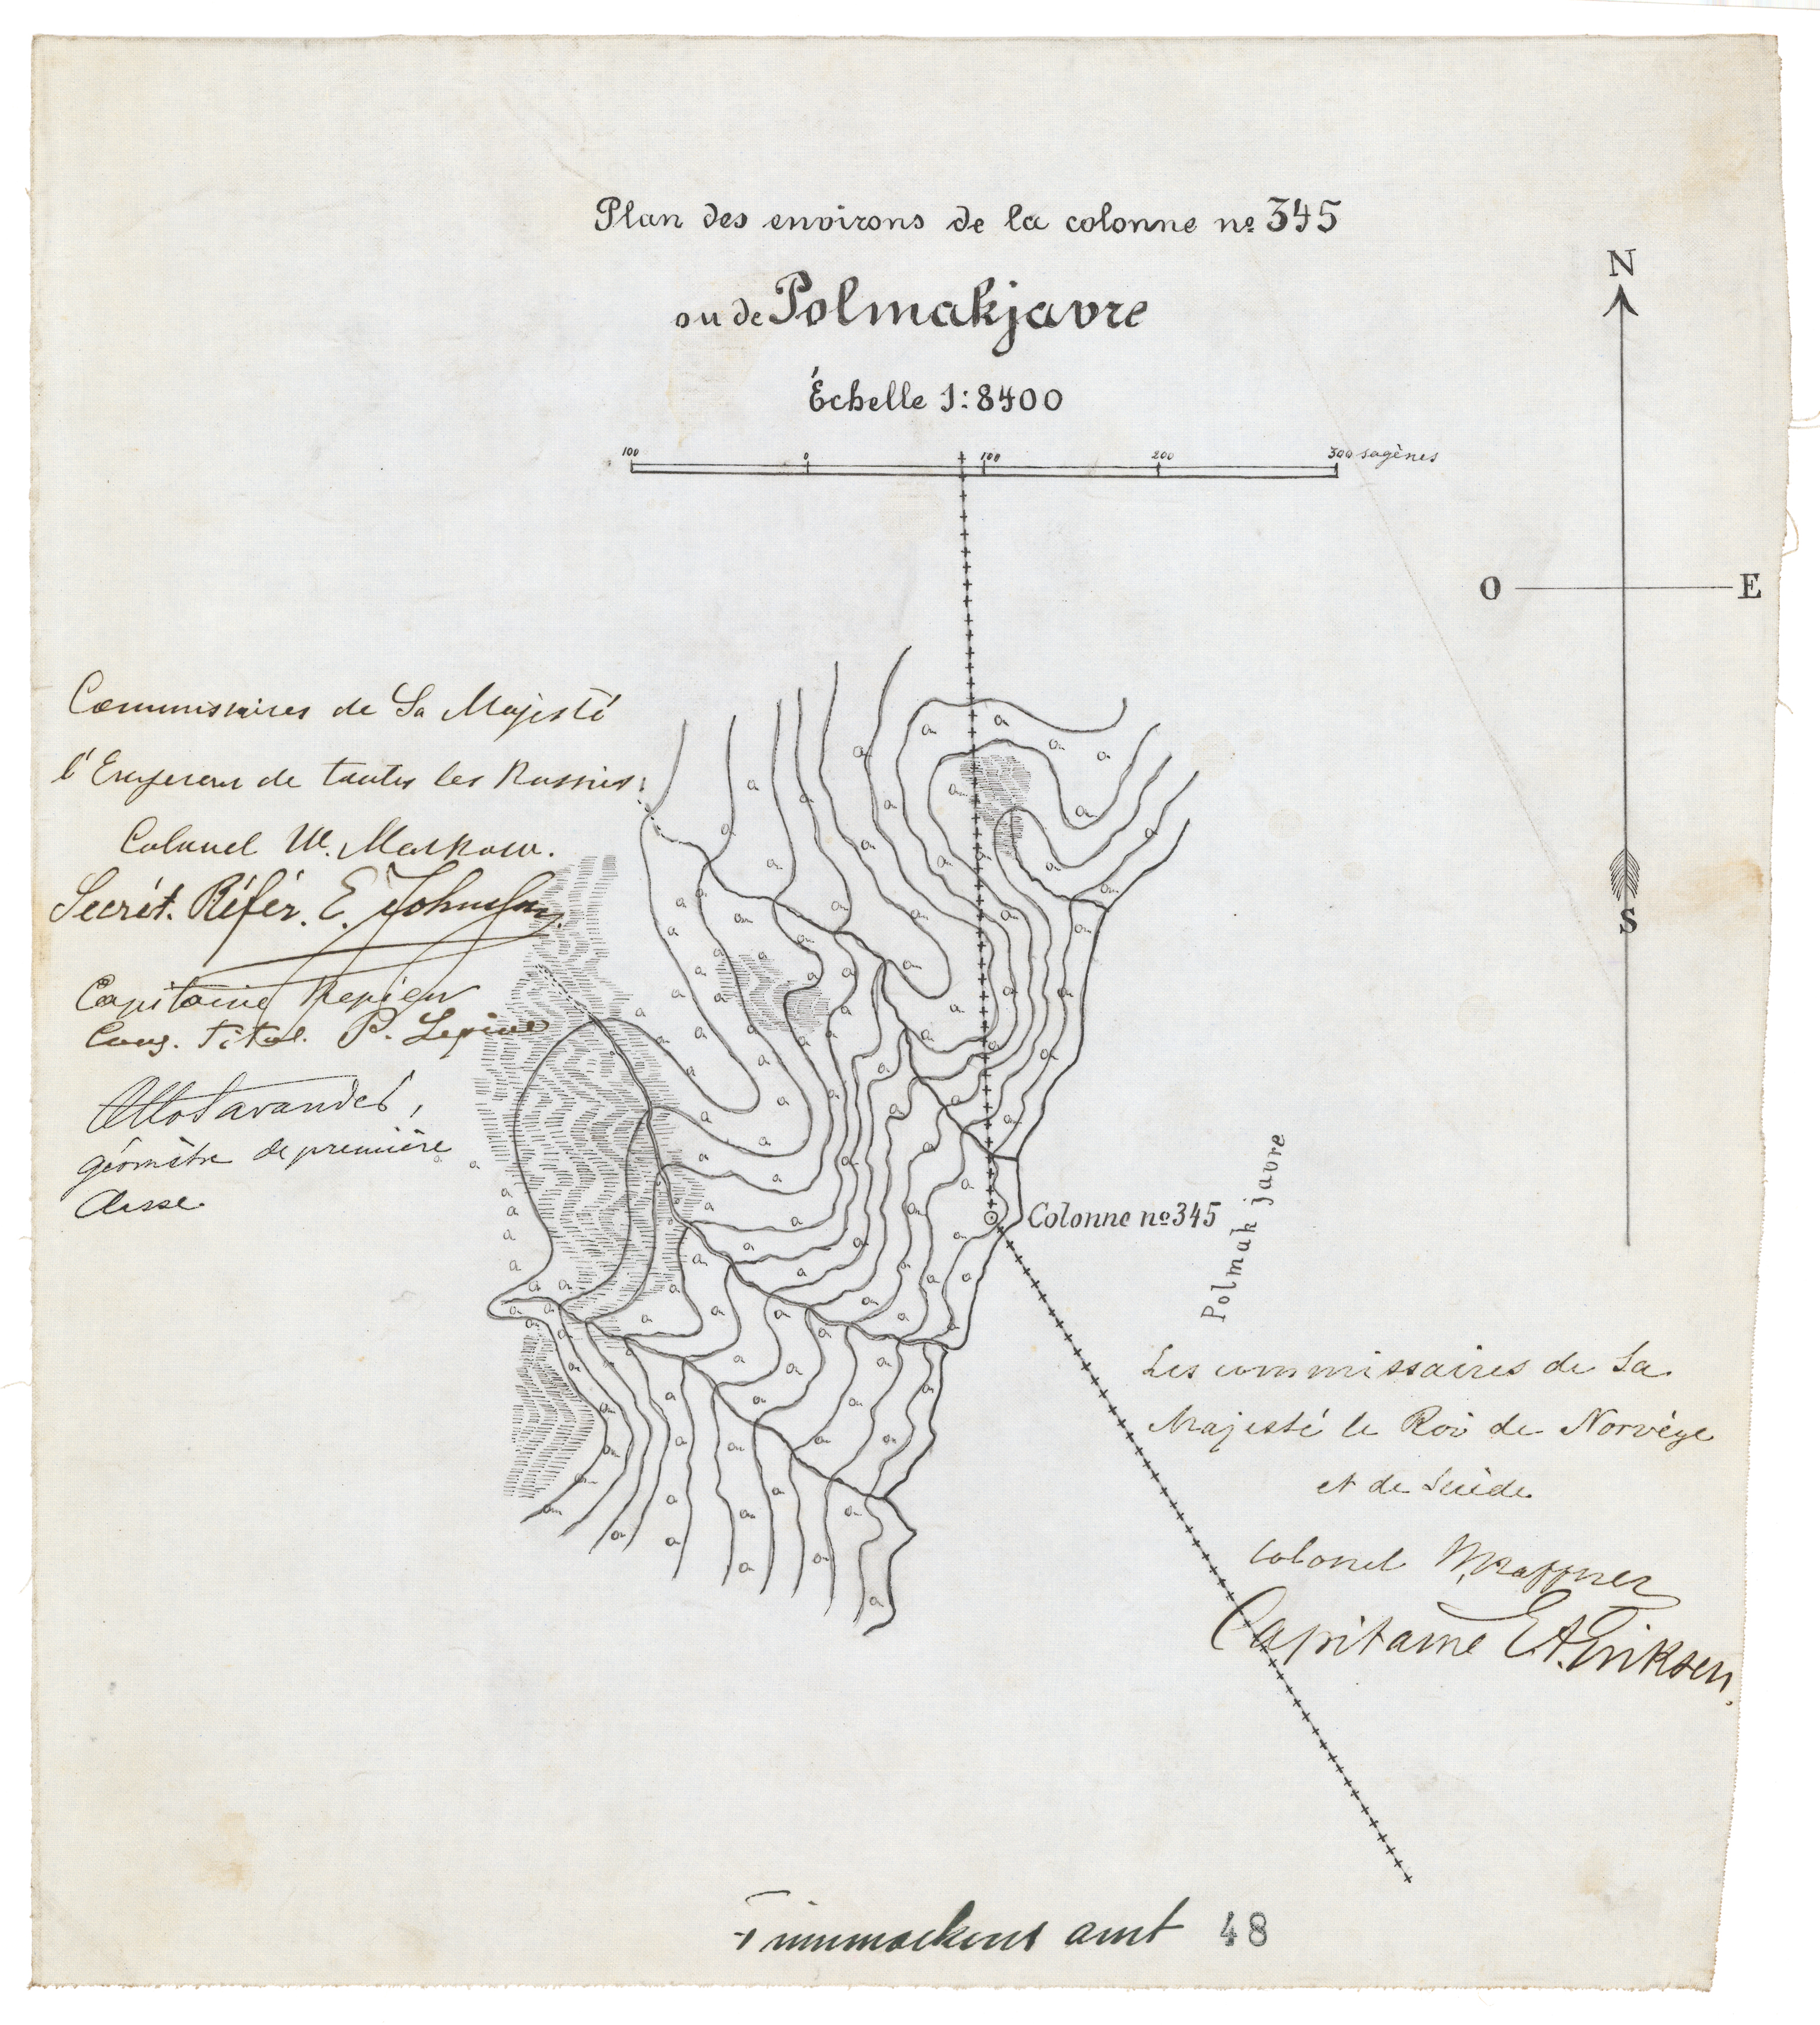 Plan des environs de la colonne nº 345
ou de Polmakjavre
Échelle 1:8400
100 0 100 200 300 sagènes
N
O E
S
Commissaires de Sa Majesté
l'Empereur de toutes les Russies:
Colonel W.
Secrét. Référ. E.
Capitaine
Cons. Titul. P.
géomètre de première
classe
Colonne nº 345
Polmak javre
Les commissaires de Sa
Majesté le Roi de Norvège
et de Suède
Colonel
Capitaine
Finnmarkens amt 48